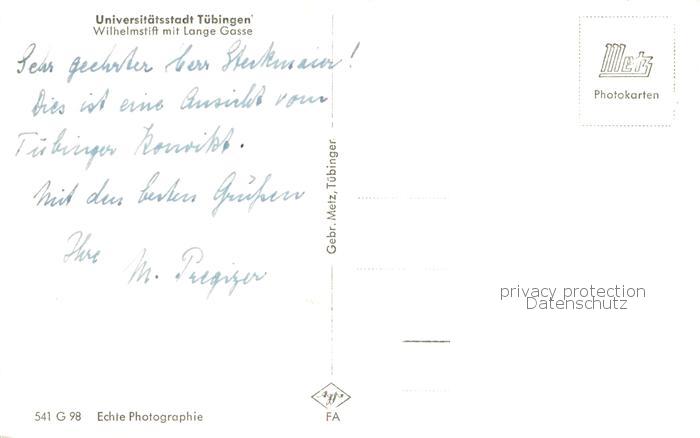 Universitätsstadt Tübingen
Wilhelmstift mit Lange Gasse
Sehr geehrter Herr Sterkmaier!
Dies ist eine Ansicht vom
Tübinger Konvikt.
Mit den besten Grüßen
Ihre
M. Pregizer
Metz
Photokarten
Gebr. Metz, Tübingen
privacy protection
Datenschutz
541 G 98 Echte Photographie
Agfa
FA